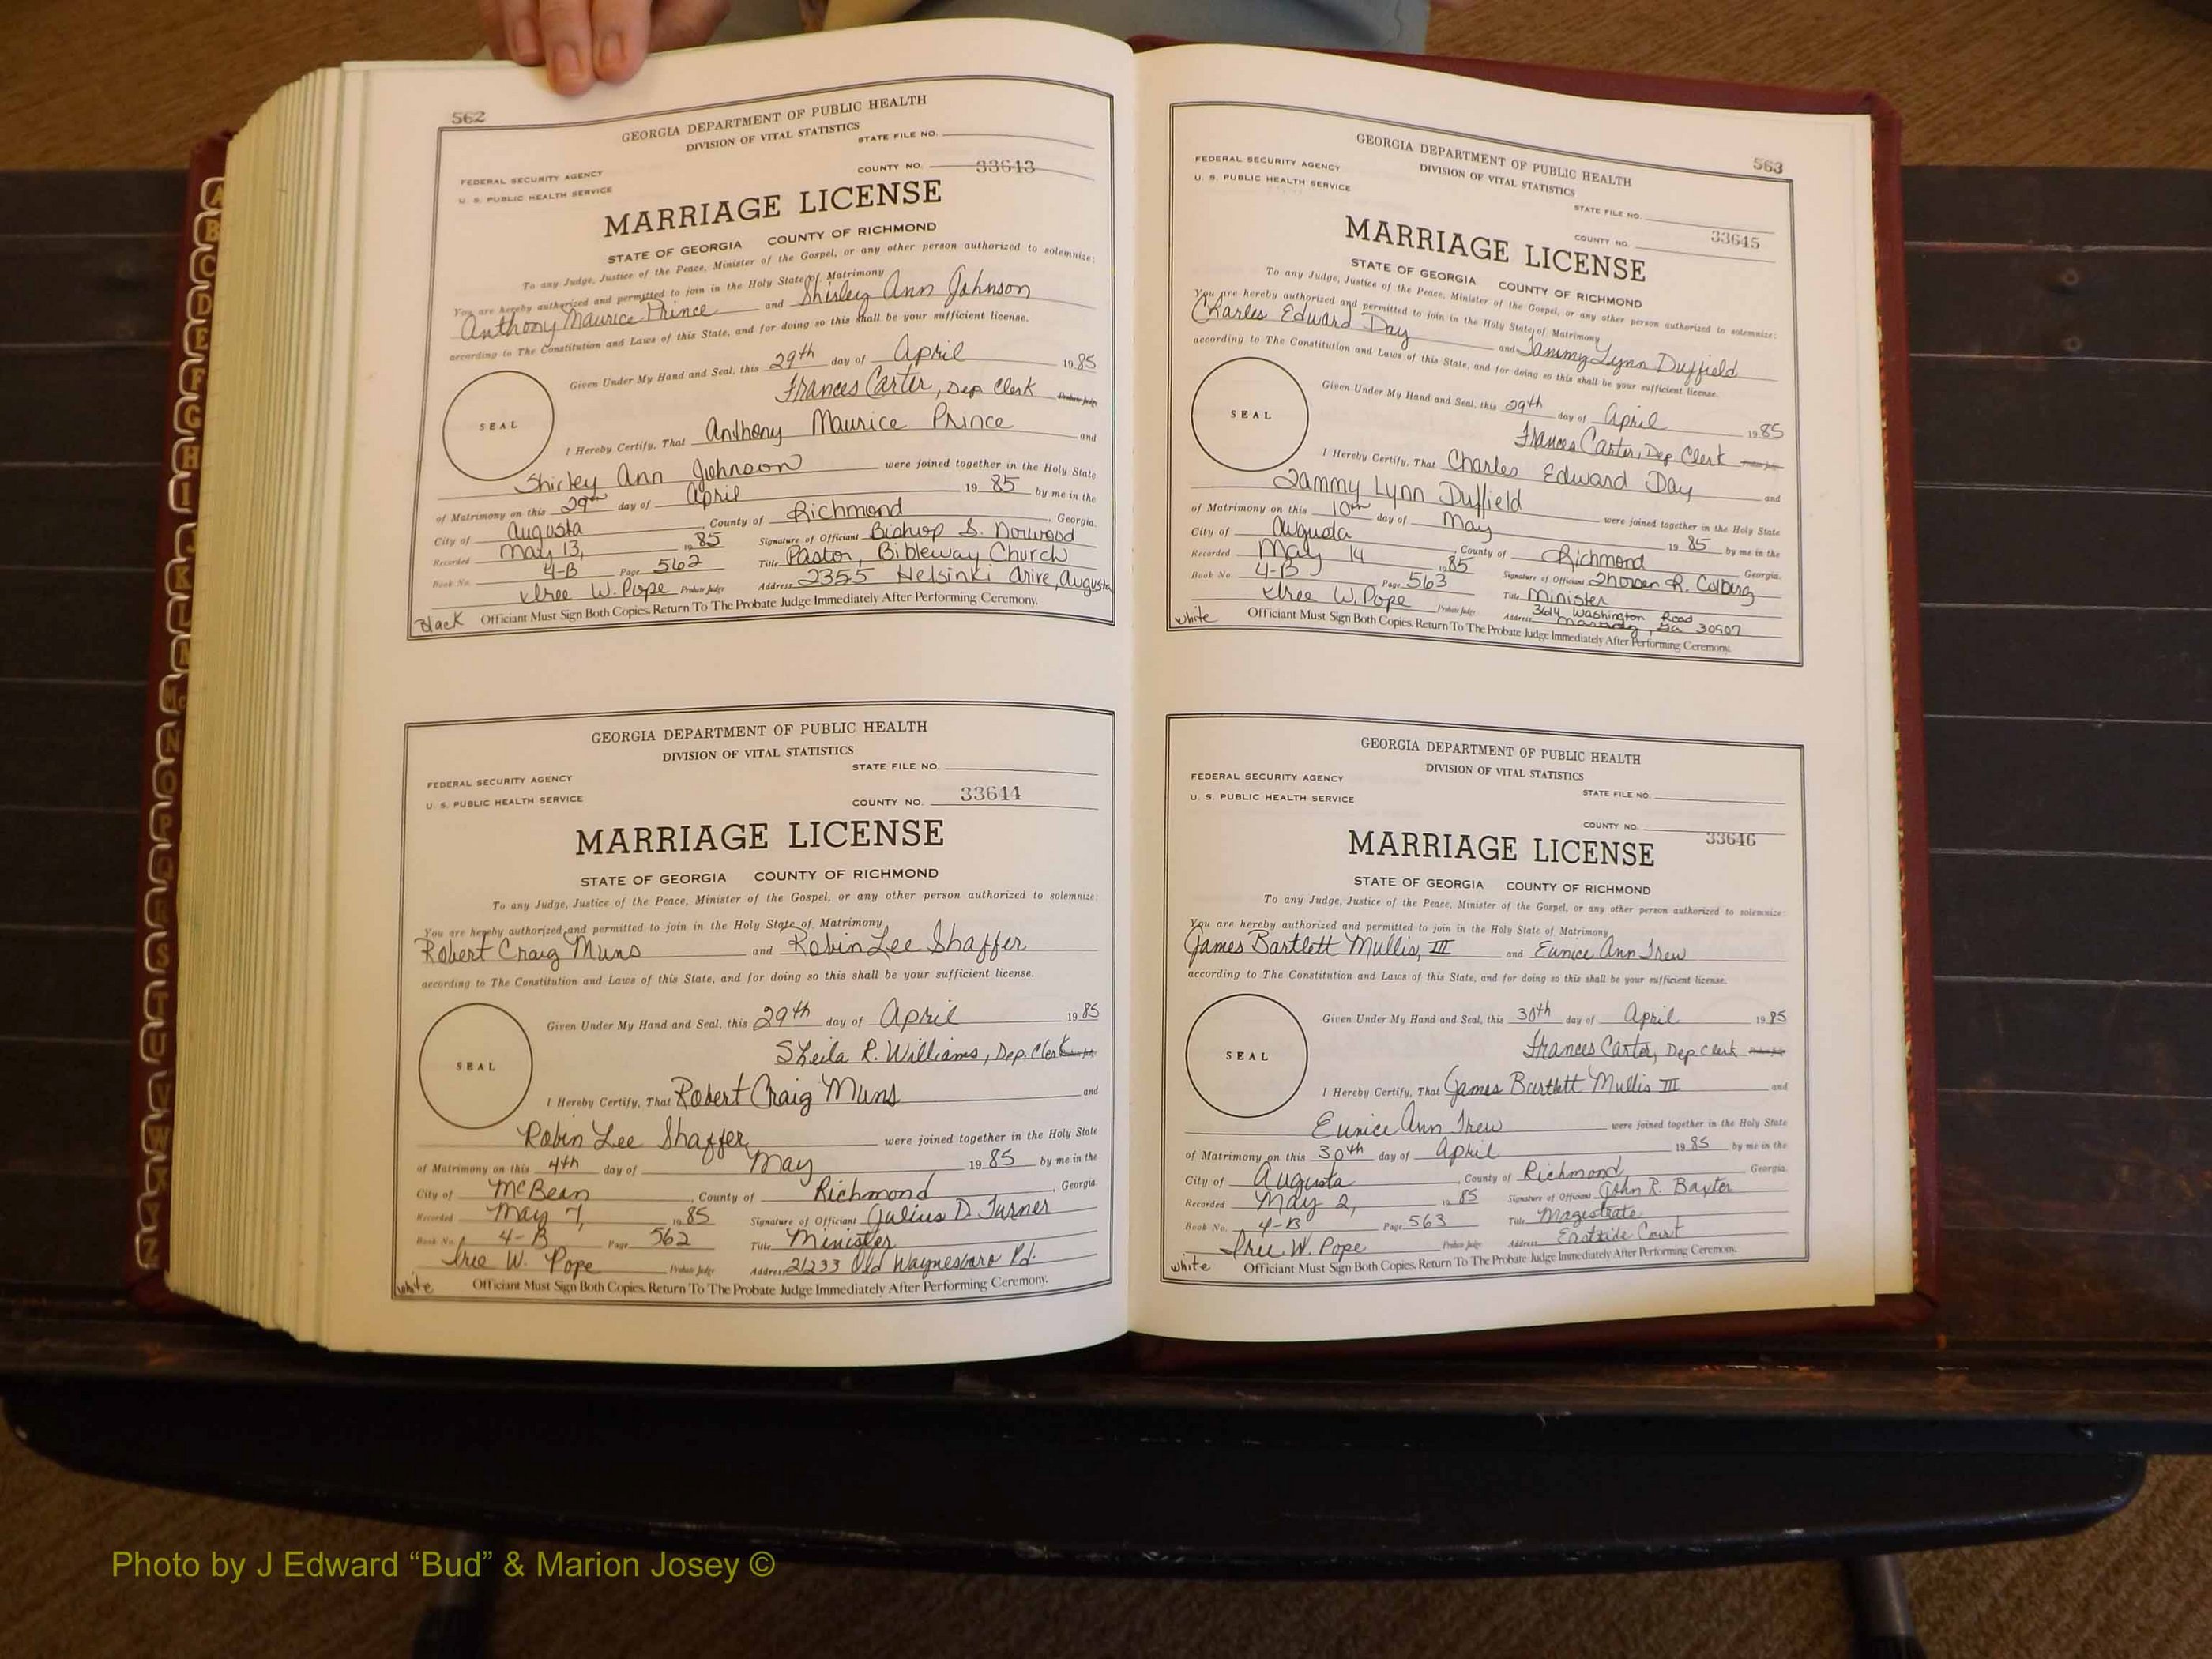 562
GEORGIA DEPARTMENT OF PUBLIC HEALTH
DIVISION OF VITAL STATISTICS
STATE FILE NO.
FEDERAL SECURITY AGENCY
U. S. PUBLIC HEALTH SERVICE
COUNTY NO. 33643
MARRIAGE LICENSE
STATE OF GEORGIA COUNTY OF RICHMOND
To any Judge, Justice of the Peace, Minister of the Gospel, or any other person authorized to solemnize:
You are hereby authorized and permitted to join in the Holy State of Matrimony
Anthony Maurice Prince and Shirley Ann Johnson
according to The Constitution and Laws of this State, and for doing so this shall be your sufficient license.
Given Under My Hand and Seal, this 29th day of April 1985
Frances Carter, Dep Clerk Probate Judge
SEAL
I Hereby Certify, That Anthony Maurice Prince and
Shirley Ann Johnson were joined together in the Holy State
of Matrimony on this 29th day of April 19 85 by me in the
City of Augusta, County of Richmond, Georgia.
Recorded May 13, 1985 Signature of Officiant Bishop S. Norwood
Book No. 4-B Page 562 Title Pastor, Bibleway Church
W. Pope Probate Judge Address 2355 Helsinki Drive, Augusta
Black Officiant Must Sign Both Copies. Return To The Probate Judge Immediately After Performing Ceremony.
GEORGIA DEPARTMENT OF PUBLIC HEALTH
DIVISION OF VITAL STATISTICS
STATE FILE NO.
FEDERAL SECURITY AGENCY
U. S. PUBLIC HEALTH SERVICE
COUNTY NO. 33644
MARRIAGE LICENSE
STATE OF GEORGIA COUNTY OF RICHMOND
To any Judge, Justice of the Peace, Minister of the Gospel, or any other person authorized to solemnize:
You are hereby authorized and permitted to join in the Holy State of Matrimony
Robert Craig Muns and Robin Lee Shaffer
according to The Constitution and Laws of this State, and for doing so this shall be your sufficient license.
Given Under My Hand and Seal, this 29th day of April 1985
Sheila R. Williams, Dep. Clerk Probate Judge
SEAL
I Hereby Certify, That Robert Craig Muns and
Robin Lee Shaffer were joined together in the Holy State
of Matrimony on this 4th day of May 1985 by me in the
City of McBean, County of Richmond, Georgia.
Recorded May 7, 1985 Signature of Officiant Julius D. Turner
Book No. 4-B Page 562 Title Minister
W. Pope Probate Judge Address 21233 Old Waynesboro Rd.
White Officiant Must Sign Both Copies. Return To The Probate Judge Immediately After Performing Ceremony.
563
GEORGIA DEPARTMENT OF PUBLIC HEALTH
DIVISION OF VITAL STATISTICS
FEDERAL SECURITY AGENCY
U. S. PUBLIC HEALTH SERVICE
STATE FILE NO.
COUNTY NO. 33645
MARRIAGE LICENSE
STATE OF GEORGIA COUNTY OF RICHMOND
To any Judge, Justice of the Peace, Minister of the Gospel, or any other person authorized to solemnize:
You are hereby authorized and permitted to join in the Holy State of Matrimony
Charles Edward Day and Tammy Lynn Duffield
according to The Constitution and Laws of this State, and for doing so this shall be your sufficient license.
Given Under My Hand and Seal, this 29th day of April 1985
Frances Carter, Dep Clerk Probate Judge
SEAL
I Hereby Certify, That Charles Edward Day and
Tammy Lynn Duffield were joined together in the Holy State
of Matrimony on this 10th day of May 1985 by me in the
City of Augusta, County of Richmond Georgia.
Recorded May 14 1985 Signature of Officiant R.
Book No. 4-B Page 563 Title Minister
W. Pope Probate Judge Address 3614 Washington Road
Ga 30907
White Officiant Must Sign Both Copies. Return To The Probate Judge Immediately After Performing Ceremony.
GEORGIA DEPARTMENT OF PUBLIC HEALTH
DIVISION OF VITAL STATISTICS
FEDERAL SECURITY AGENCY
U. S. PUBLIC HEALTH SERVICE
STATE FILE NO.
COUNTY NO. 33646
MARRIAGE LICENSE
STATE OF GEORGIA COUNTY OF RICHMOND
To any Judge, Justice of the Peace, Minister of the Gospel, or any other person authorized to solemnize:
You are hereby authorized and permitted to join in the Holy State of Matrimony
James Bartlett Mullis, III and Eunice Ann Trew
according to The Constitution and Laws of this State, and for doing so this shall be your sufficient license.
Given Under My Hand and Seal, this 30th day of April 1985
Frances Carter, Dep Clerk Probate Judge
SEAL
I Hereby Certify, That James Bartlett Mullis III and
Eunice Ann Trew were joined together in the Holy State
of Matrimony on this 30th day of April 1985 by me in the
City of Augusta, County of Richmond, Georgia.
Recorded May 2, 1985 Signature of Officiant John R. Baxter
Book No. 4-B Page 563 Title Magistrate
W. Pope Probate Judge Address Eastside Court
White Officiant Must Sign Both Copies. Return To The Probate Judge Immediately After Performing Ceremony.
Photo by J Edward “Bud” & Marion Josey ©